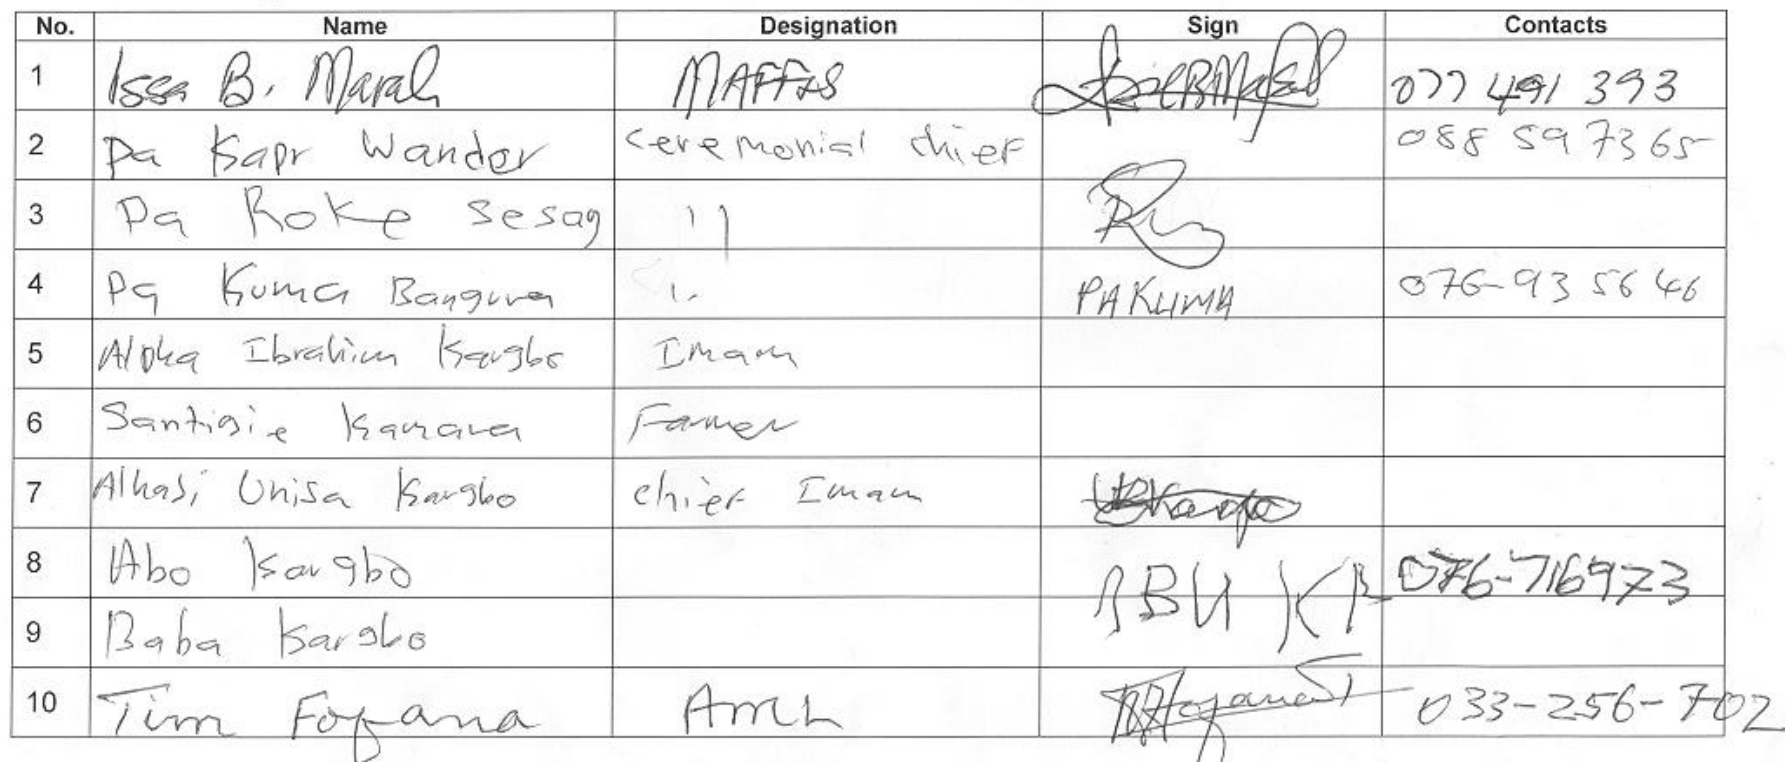 No. Name Designation Sign Contacts
1 Issa B. Marah MAFFS 077 491 393
2 Pa Kapr Wander ceremonial chief 088 597365
3 Pa Roke Sesay 11
4 Pa Kuma Bangura 1. PA KUMA 076-93 56 46
5 Alpha Ibrahim Kargbo Imam
6 Santigie Kamara Famer
7 Alhaji Unisa Kargbo chief Imam
8 Abo Kargbo ABU KB 076-716973
9 Baba Kargbo
10 Tim Fofana AML 033-256-702